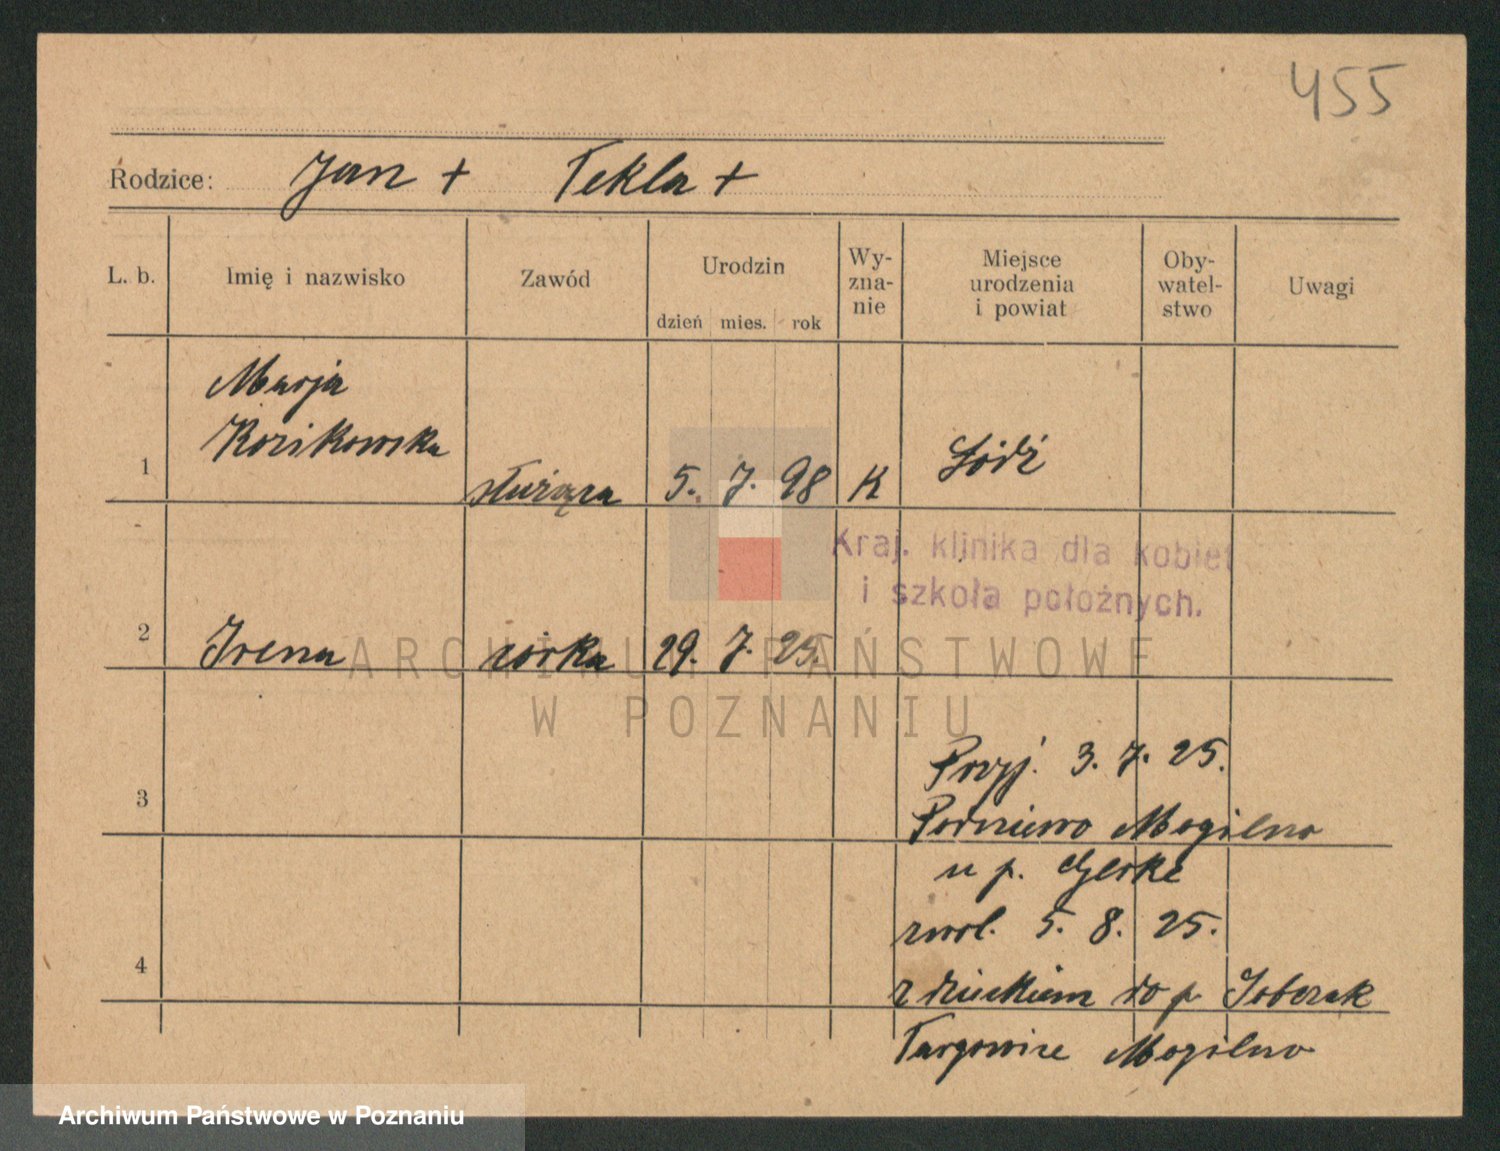 455
Rodzice: Jan + Tekla +
L. b. Imię i nazwisko Zawód Urodzin dzień mies. rok Wy-zna-nie Miejsce urodzenia i powiat Oby-watel-stwo Uwagi
Marja
1 Kozikowska służąca 5. 7. 98 K Łódź
Kraj. klinika dla kobiet
i szkoła położnych.
2 Irena córka 29. 7. 25.
ARCHIWUM PAŃSTWOWE
W POZNANIU
Przyj. 3. 7. 25.
3 Mogilno
u p. Gerke
zwol. 5. 8. 25.
4 z dzieckiem do p.
Targowice Mogilno
Archiwum Państwowe w Poznaniu